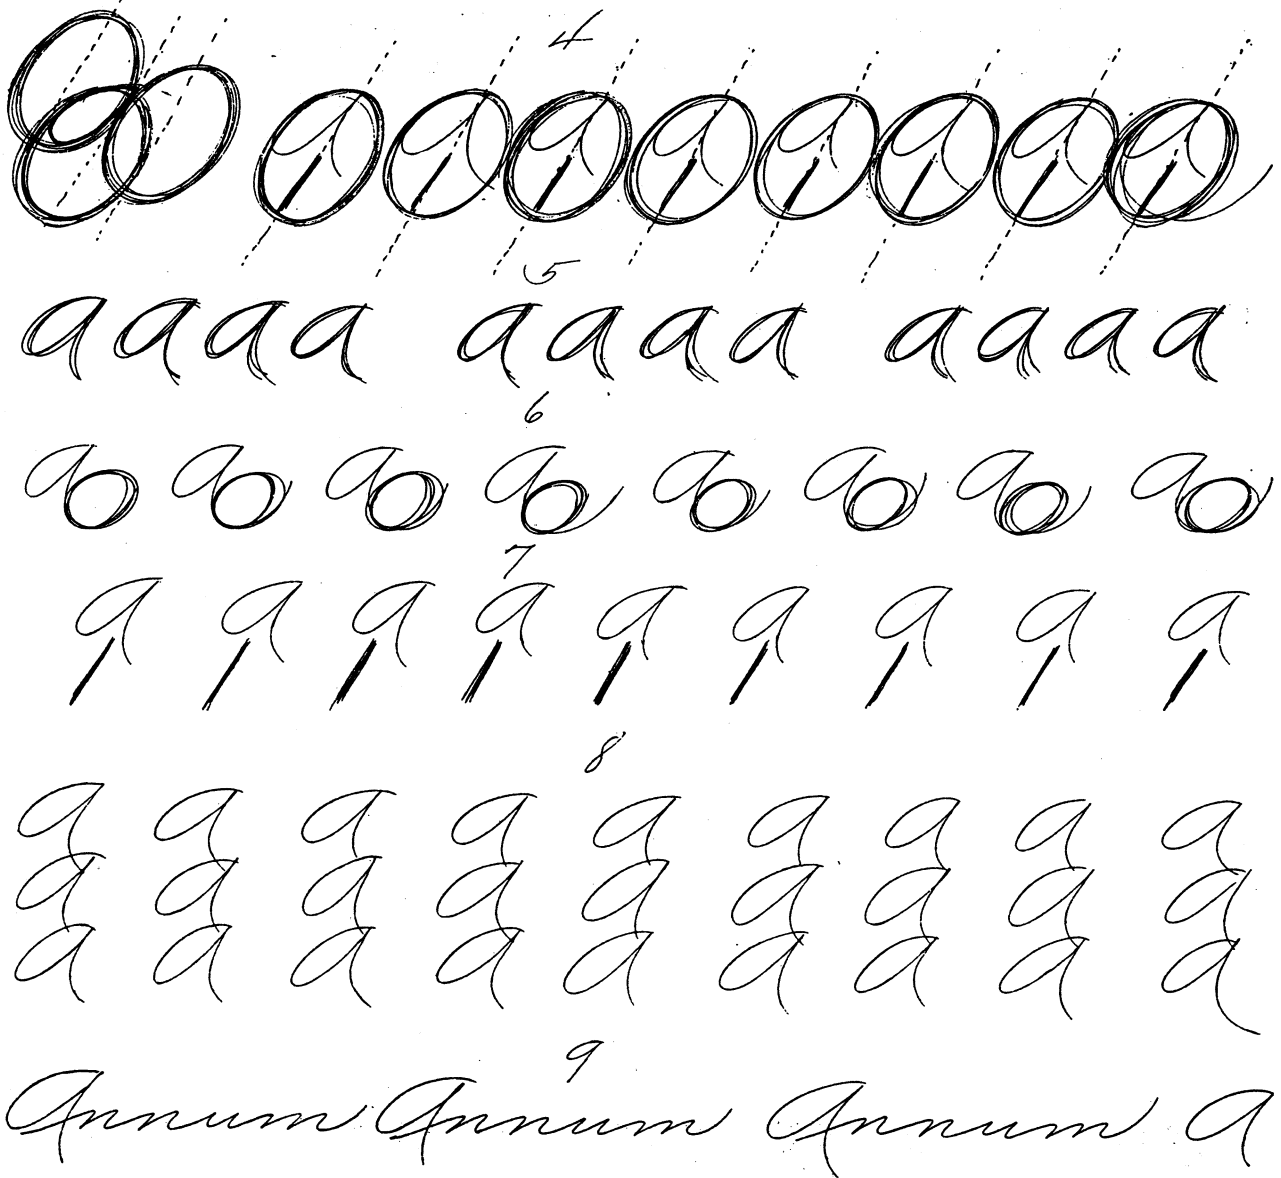 4
A A A A A A A A
5
A A A A A A A A A A A A
6
A A A A A A A A
7
A A A A A A A A A
8
A A A A A A A A A
A A A A A A A A A
A A A A A A A A A
9
Annum Annum Annum A